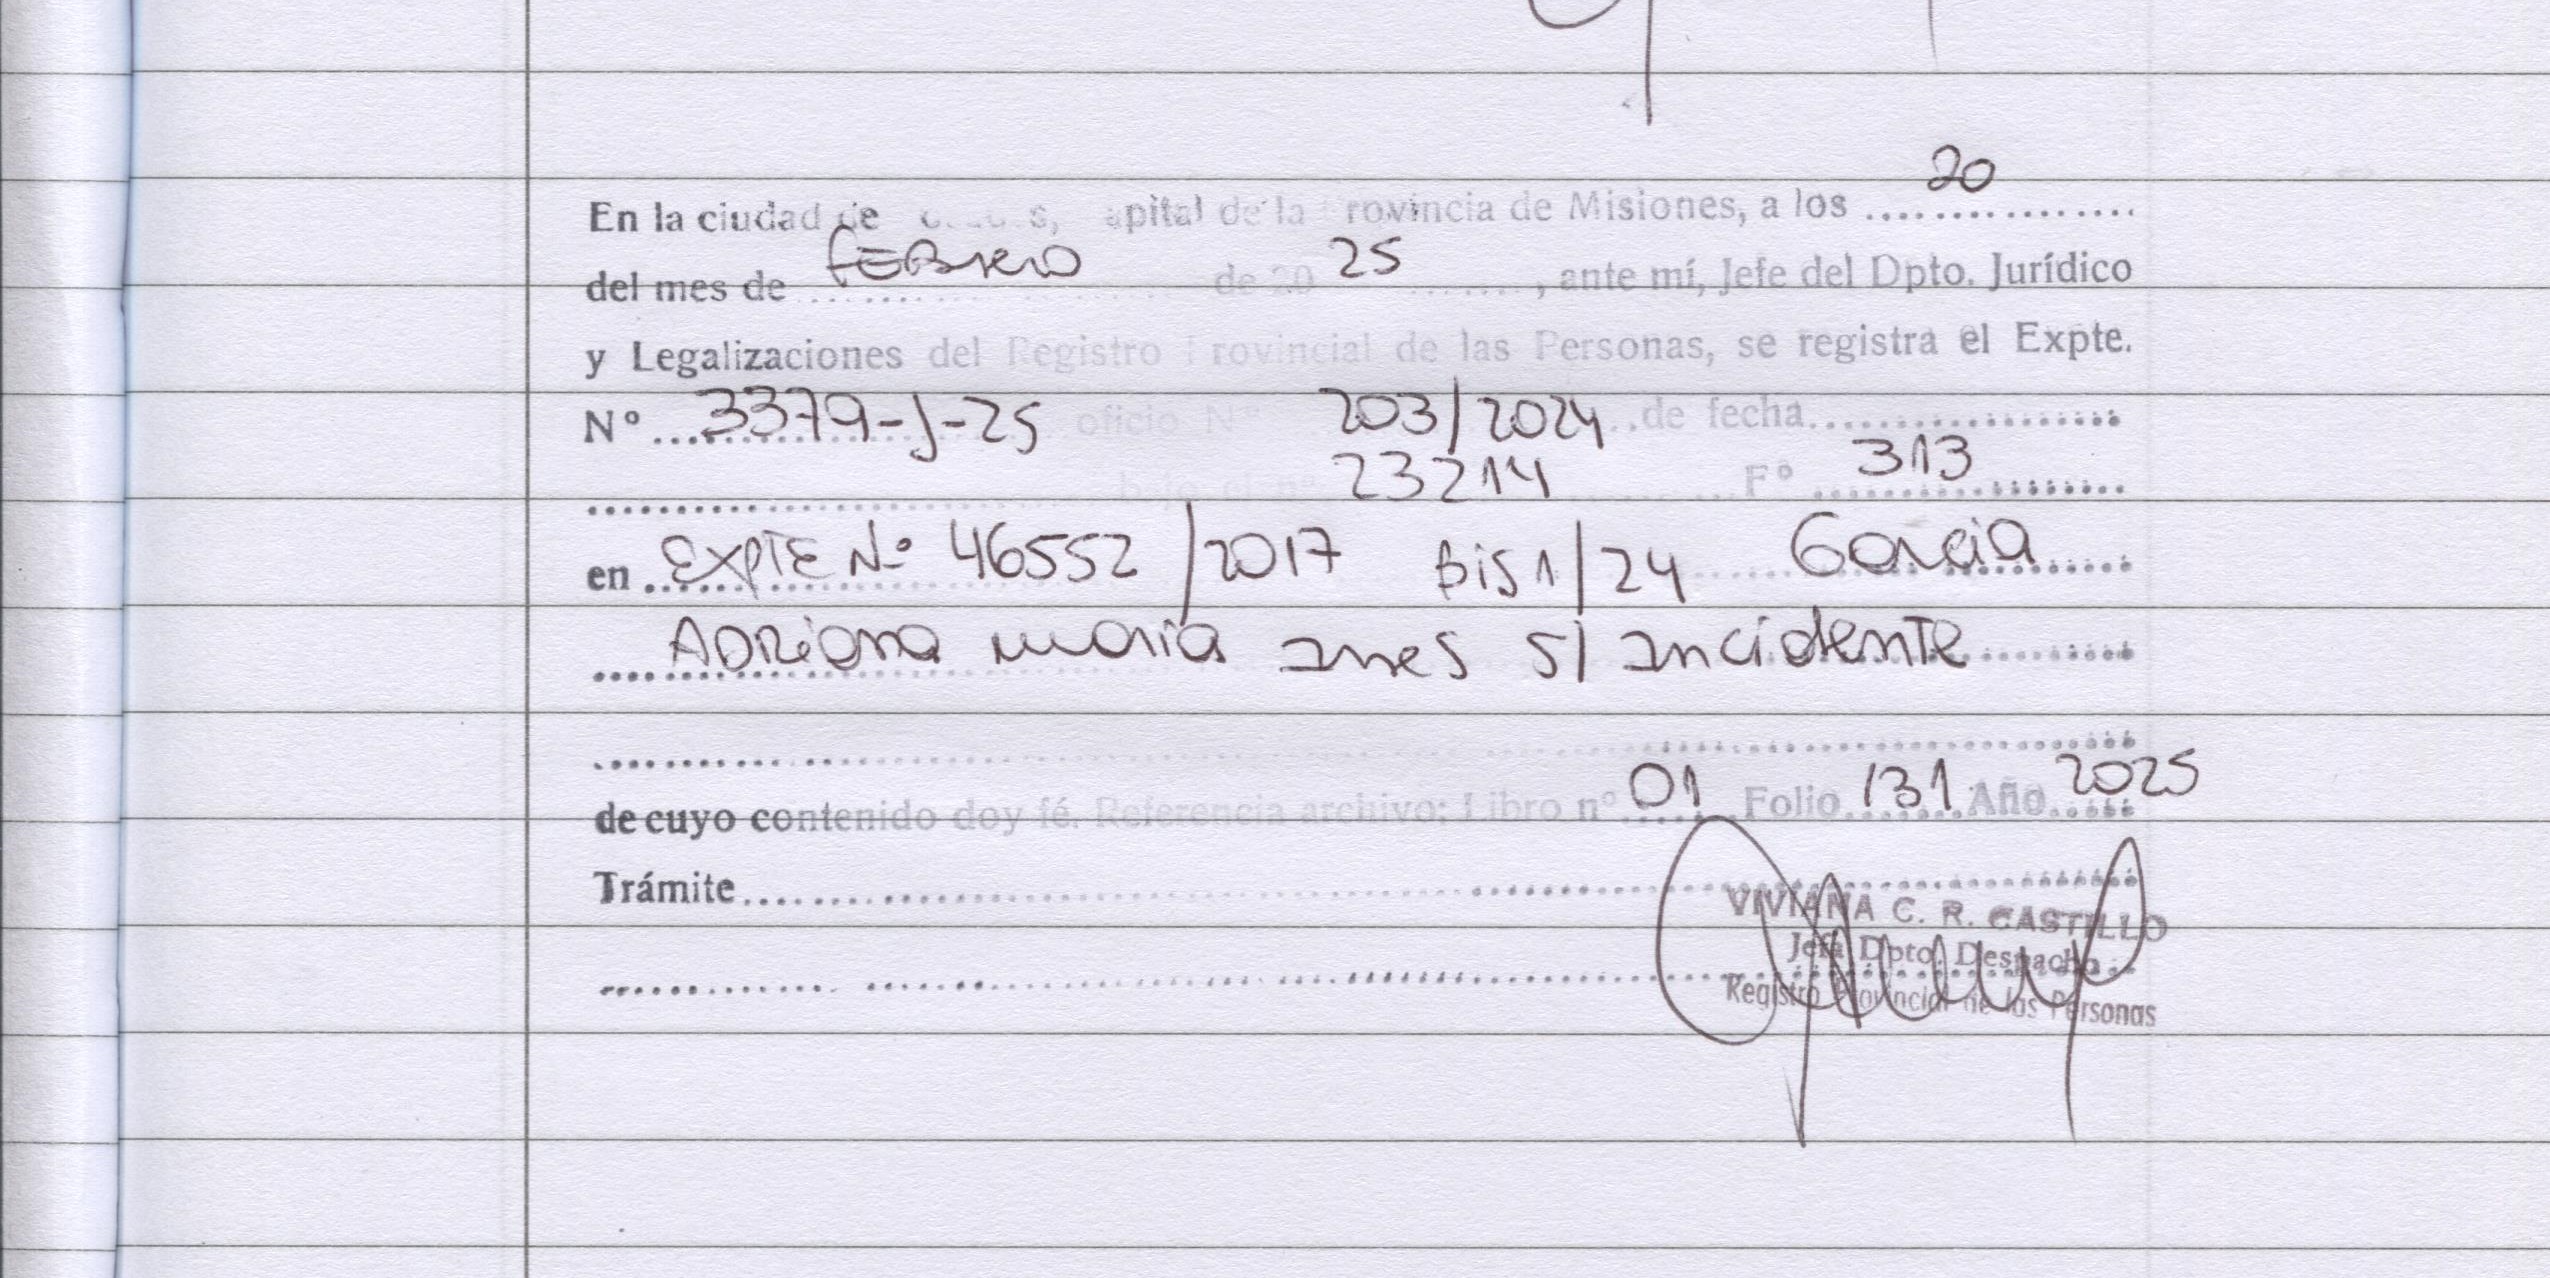 En la ciudad de s, apital de la rovincia de Misiones, a los 20
del mes de febrero de 20 25, ante mí, Jefe del Dpto. Jurídico
y Legalizaciones del Registro rovincial de las Personas, se registra el Expte.
Nº 3379-J-25 oficio Nº 203/2024 de fecha
bajo el nº 23214 Fº 313
en Expte Nº 46552/2017 Bis 1/24 Garcia
Adriana maria Ines s/ Incidente
de cuyo contenido doy fé. Referencia archivo: Libro nº 01 Folio 131 Año 2025
Trámite
VIVIANA C. R. CASTILLO
Jefa Dpto. Despacho
Registro Provincial de las Personas